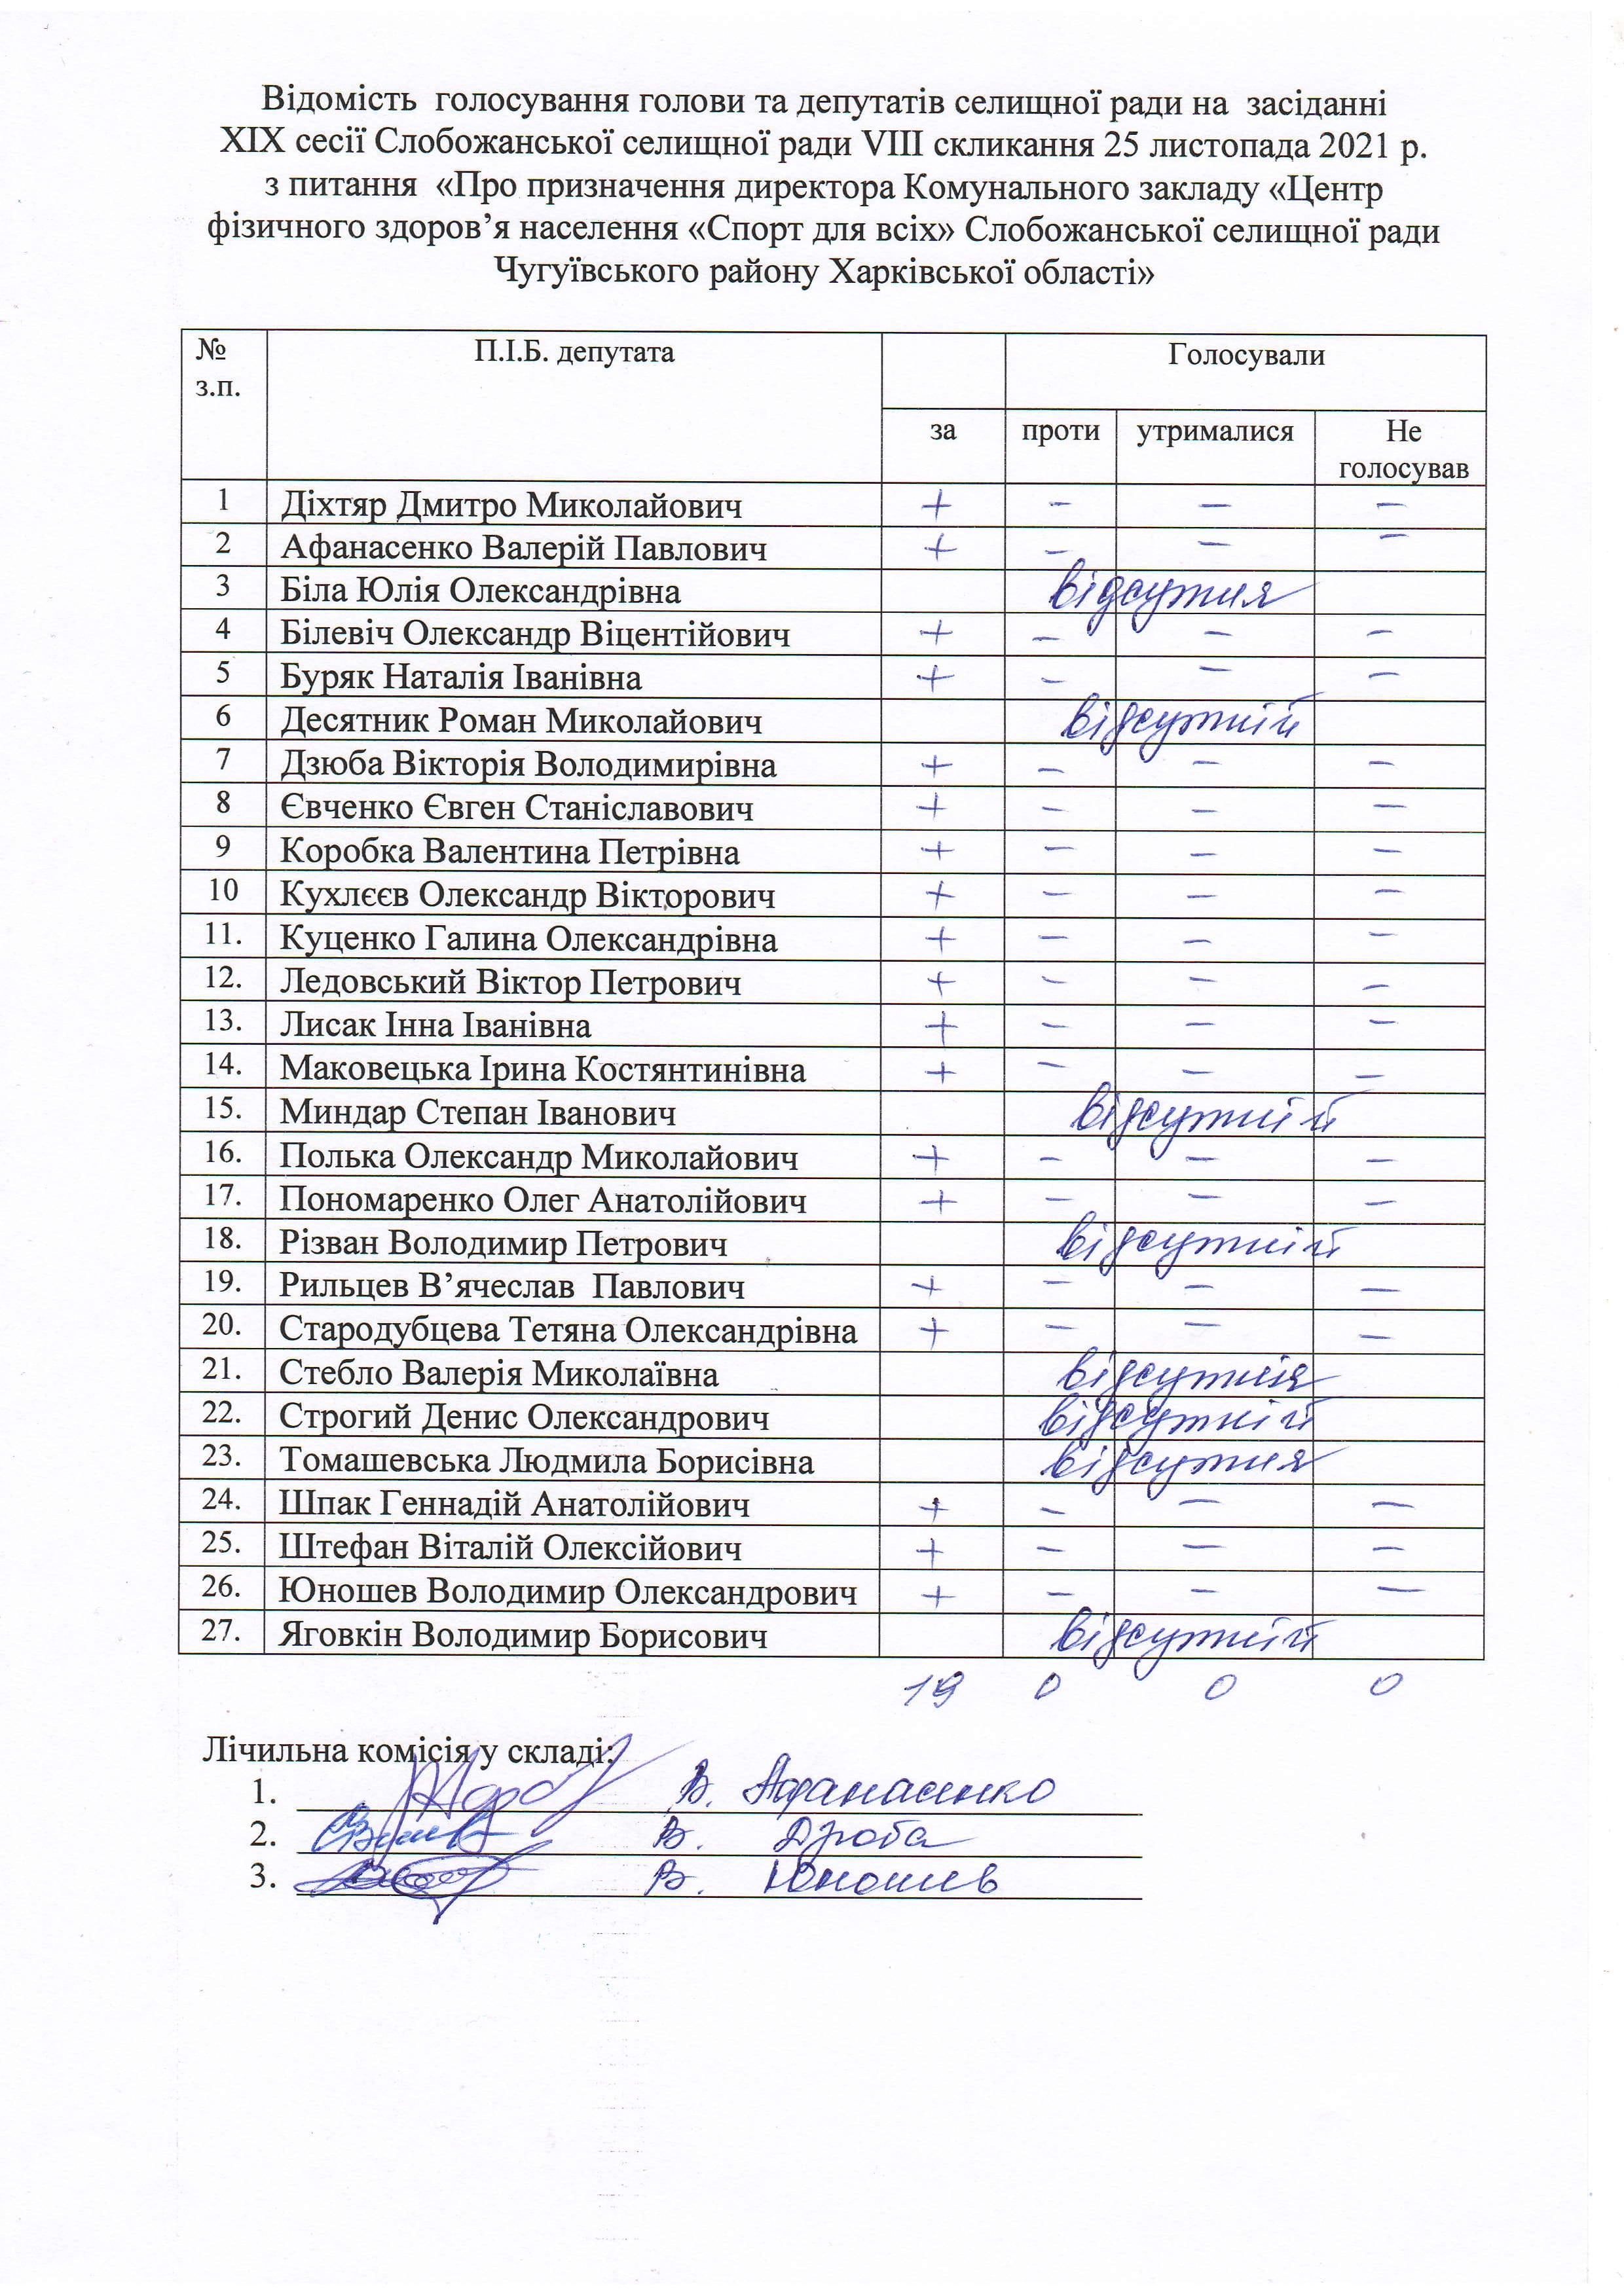 Відомість голосування голови та депутатів селищної ради на засіданні
XIX сесії Слобожанської селищної ради VIII скликання 25 листопада 2021 р.
з питання «Про призначення директора Комунального закладу «Центр
фізичного здоров’я населення «Спорт для всіх» Слобожанської селищної ради
Чугуївського району Харківської області»
№ П.І.Б. депутата Голосували
з.п.
за проти утрималися Не
голосував
1 Діхтяр Дмитро Миколайович + - - -
2 Афанасенко Валерій Павлович + - - -
3 Біла Юлія Олександрівна відсутня
4 Білевіч Олександр Віцентійович + - - -
5 Буряк Наталія Іванівна + - - -
6 Десятник Роман Миколайович відсутній
7 Дзюба Вікторія Володимирівна + - - -
8 Євченко Євген Станіславович + - - -
9 Коробка Валентина Петрівна + - - -
10 Кухлєєв Олександр Вікторович + - - -
11. Куценко Галина Олександрівна + - - -
12. Ледовський Віктор Петрович + - - -
13. Лисак Інна Іванівна + - - -
14. Маковецька Ірина Костянтинівна + - - -
15. Миндар Степан Іванович відсутній
16. Полька Олександр Миколайович + - - -
17. Пономаренко Олег Анатолійович + - - -
18. Різван Володимир Петрович відсутній
19. Рильцев В’ячеслав Павлович + - - -
20. Стародубцева Тетяна Олександрівна + - - -
21. Стебло Валерія Миколаївна відсутня
22. Строгий Денис Олександрович відсутній
23. Томашевська Людмила Борисівна відсутня
24. Шпак Геннадій Анатолійович + - - -
25. Штефан Віталій Олексійович + - - -
26. Юношев Володимир Олександрович + - - -
27. Яговкін Володимир Борисович відсутній
19 0 0 0
Лічильна комісія у складі:
1. В. Афанасенко
2. В. Дроба
3. В. Юношев